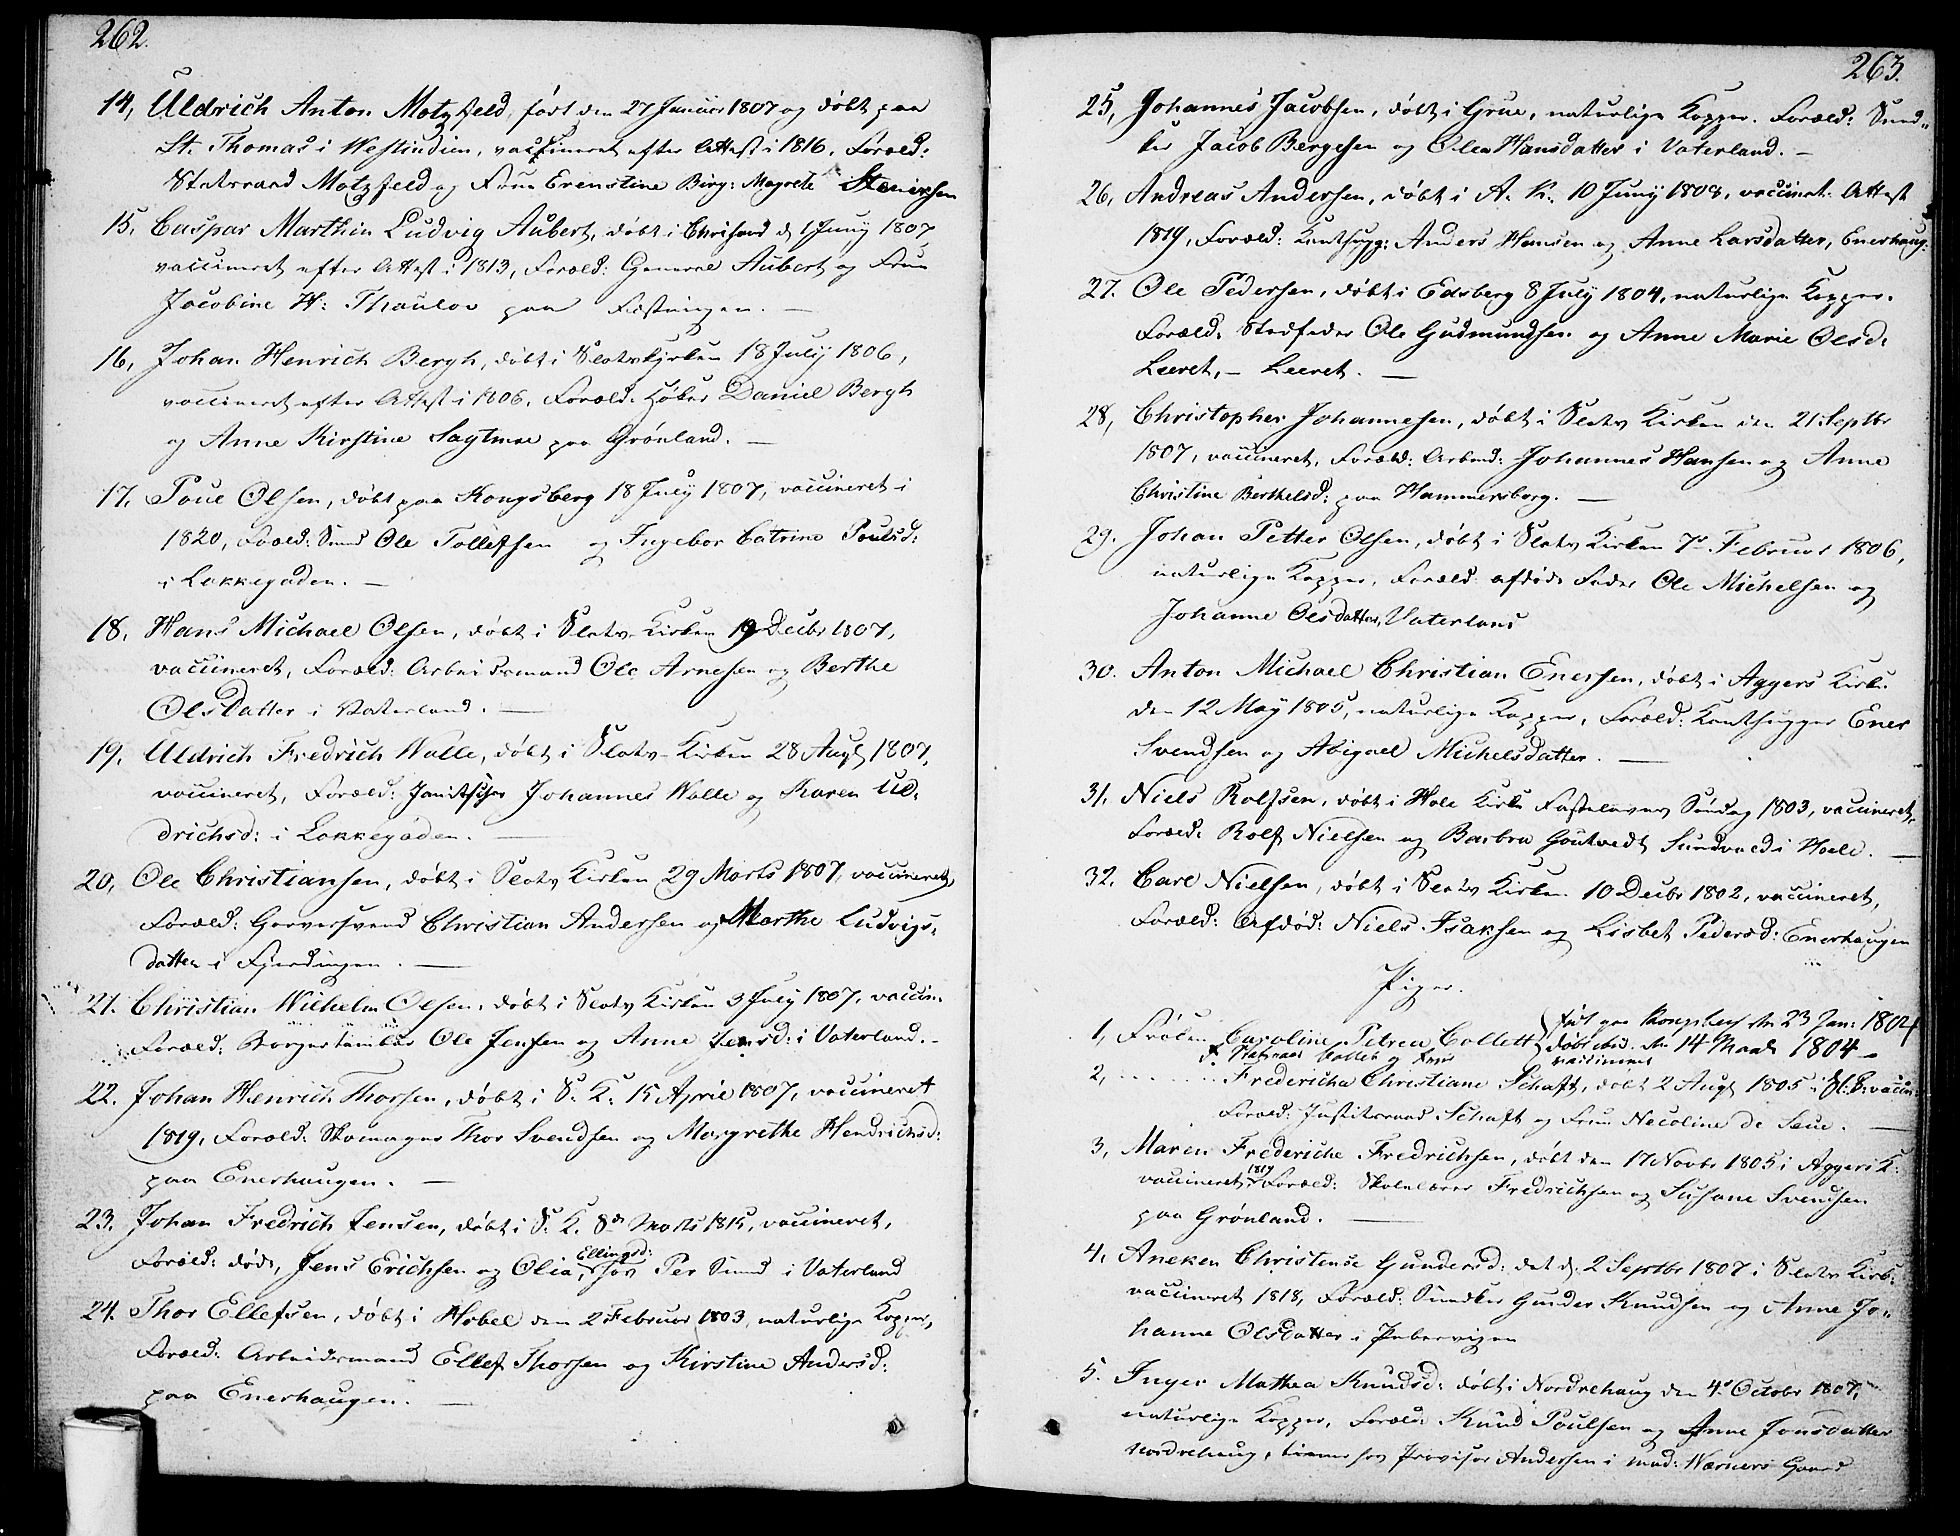 262.
14, Uldrich Anton Motzfeld, født den 27 Januar 1807 og døbt paa
St. Thomas i Westindien, vaccineret efter Attest i 1816, Foræld:
Statsraad Motzfeld og Frue Ernestine Birg: Magrete Stenersen
15, Caspar Marthin Ludvig Aubert, døbt i Christiand d 1 Juny 1807
vaccineret efter Attest i 1813, Foræld: General Aubert og Frue
Jacobine H: Thaulov paa Fæstningen. —
16, Johan Henrich Bergh, døbt i Slotskirken 18 July 1806,
vaccineret efter Attest i 1806, Foræld. Høker Daniel Bergh
og Anne Kirstine Sagtmoe paa Grønland. —
17, Poue Olsen, døbt paa Kongsberg 18 July 1807, vaccineret i
1820, Foræld: Smed Ole Tollefsen og Ingebor Catrine Poulsd:
i Lakkegaden. —
18. Hans Michael Olsen, døbt i Slots-Kirken 19 Decbr 1807,
vaccineret, Foræld: Arbeidsmand Ole Arnesen og Berthe
Olsdatter i Vaterland. —
19. Uldrich Fredrich Walle, døbt i Slots-Kirken 28 Augt 1807,
vaccineret, Foræld: Janitschar Johannes Walle og Karen Ul-
drichsd: i Lakkegaden. —
20, Ole Christiansen, døbt i Slots Kirken 29 Marts 1807, vaccineret,
Foræld: Garversvend Christian Andersen og Marthe Ludvigs-
datter i Fjerdingen. —
21. Christian Wilhelm Olsen, døbt i Slots Kirken 3 July 1807, vaccin.
Foræld: Borgertambur Ole Jensen og Anne Jensd: i Vaterland. -
22. Johan Henrich Thorsen, døbt i S. K. 15 April 1807, vaccineret
1819, Foræld: Skomager Thor Svendsen og Margrethe Hendrichsd:
paa Enerhaugen. —
23. Johan Fredrich Jensen, døbt i S. K. 8de Marts 1815, vaccineret,
Foræld: døde, Jens Erichsen og Olia Ellingsd: hos Per Smed i Vaterland
24. Thor Ellefsen, døbt i Hobel den 2 Februar 1803, naturlige Kopper,
Foræld: Arbeidsmand Ellef Thorsen og Kirstine Andersd:
paa Enerhaugen. —
263.
25, Johannes Jacobsen, døbt i Grue, naturlige Kopper. Foræld: Sned-
ker Jacob Bergesen og Olea Hansdatter i Vaterland. —
26, Andreas Andersen, døbt i A. K. 10 Juny 1808, vaccinet: Attest
1819, Foræld: Kanthugg: Anders Hansen og Anne Larsdatter, Enerhaug:
27. Ole Pedersen, døbt i Edsberg 8 July 1804, naturlige Kopper.
Foræld: Stedfader Ole Gudmundsen og Anne Marie Olsd:
Leeret, — Leeret. —
28, Christopher Johannesen, døbt i Slots Kirken den 21 Septbr
1807, vaccineret, Foræld: Arbmd: Johannes Hansen og Anne
Christine Berthelsd: paa Hammersborg. —
29. Johan Petter Olsen, døbt i Slots Kirken 7de Februar 1806,
naturlige Kopper, Foræld: afdøde Fader Ole Michelsen og
Johanne Olsdatter, Vaterland
30. Anton Michael Christian Enersen, døbt i Aggers Kirke
den 12 May 1805, naturlige Kopper, Foræld: Kanthugger Ener
Svendsen og Abigael Michelsdatter. —
31. Niels Rolfsen, døbt i Hole Kirke Fastelavns Søndag 1803, vaccineret,
Foræld: Rolf Nielsen og Barbra Goutvedt Sundvold i Hoele. —
32. Carl Nielsen, døbt i Slots Kirken 10 Decbr 1802, vaccineret,
Foræld: Afdød: Niels Isaksen og Lisbet Pedersd: Enerhaugen
Piger.
1, Frøken Caroline Petrea Collett født paa Kongsberg den 23 Jan: 1804
F. Collett og Frue døbt ibid. den 14 Marts 1804 -
vaccineret
2, ........ Fredericha Christiane Schaft, døbt 2 Augt 1805 i Sl: K: vaccin:
Foræld: Justitsraad Schaft og Frue Necoline de Seue. —
3, Maren Frederiche Fredrichsen, døbt den 17 Novbr 1805 i Aggers K:
vaccineret 1819 Foræld: Skolelærer Fredrichsen og Susane Svendsen
paa Grønland. —
4, Aneken Christense Gundersd: døbt d: 2 Septbr 1807 i Slots Kirk:
vaccineret 1818, Foræld: Snedker Gunder Knudsen og Anne Jo-
hanne Olsdatter i Pebervigen
5. Inger Mathea Knudsd: døbt i Nordrehaug den 4de October 1807,
naturlige Kopper, Foræld: Knud Poulsen og Anne Jonsdatter
Nordrehaug, tiener hos Provisor Andersen i Mad: Wærners Gaard